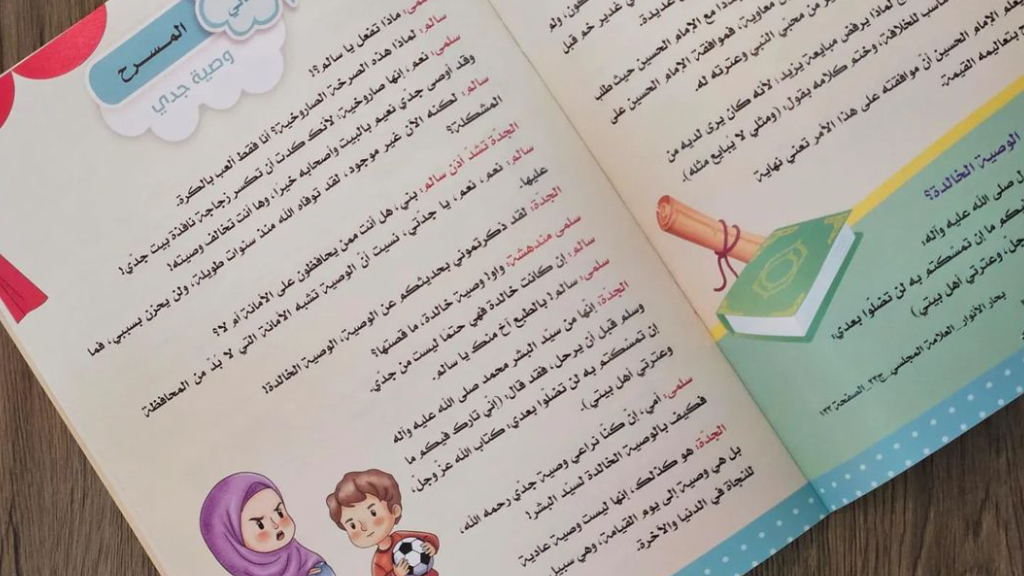 في غدير خم قبل
عديدة.
مع الإمام الحسين حيث طلب
معاوية، فموافقة الإمام الحسين على
من محبي النبي وعترته له.
لماذا يرفض مبايعة يزيد، لأنه كان يرى لديه من
للخلافة، وختم كلامه بقول، (ومثلي لا يبايع مثله).
الإمام الحسين أن موافقته على هذا الأمر تعني نهاية
تعاليمه القيمة.
الوصية الخالدة؟
صلى الله عليه وآله،
ما إن تمسكتم به لن تضلوا بعدي،
وعترتي أهل بيتي)
بحار الأنوار_ العلامة المجلسي_ج٢٣_ الصفحة ١٣٣
المسرح
وصية جدي
سلمى: ماذا تفعل يا سالم؟!
سالم: لماذا هذه الصرخة الصاروخية؟ أنا فقط ألعب بالكرة.
سلمى: نعم، إنها صاروخية؛ لأنك كدت أن تكسر زجاجة نافذة بيت جدي!
وقد أوصى جدي نعيم بالبيت وأصحابه خيرًا، وها أنت تخالف وصيته!
سالم: لكنه الآن غير موجود، لقد توفاه الله منذ سنوات طويلة، ولن يحزن بسببي، فما
المشكلة؟
الجدة تشد أذن سالم: بني، هل أنت ممن يحافظون على الأمانة أم لا؟
سالم: نعم، نعم، يا جدتي، نسيت أنّ الوصية تشبه الأمانة التي لا بدّ من المحافظة
عليها.
الجدة: لقد ذكرتموني بحديثكم عن الوصية، الوصية الخالدة!
سلمى مندهشة: واو! وصية خالدة، ما قصتها؟
سالم: إن كانت خالدة فهي حتمًا ليست من جدي.
سلمى: سالم! بالطبع أخ منك يا سالم.
الجدة: إنها من سيد البشر محمد صلى الله عليه وآله
وسلم قبل أن يرحل، فقد قال، (أنّي تارك فيكم ما
إن تمسكتم به لن تضلوا بعدي، كتاب الله عز وجل،
وعترتي أهل بيتي).
سلمى: أمي، إن كنا نراعي وصية جدي رحمه الله،
فكيف بالوصية الخالدة لسيد البشر!
الجدة: هو كذلك، إنها ليست وصية عادية
بل هي وصية إلى يوم القيامة، وهي سبيل
للنجاة في الدنيا والآخرة.